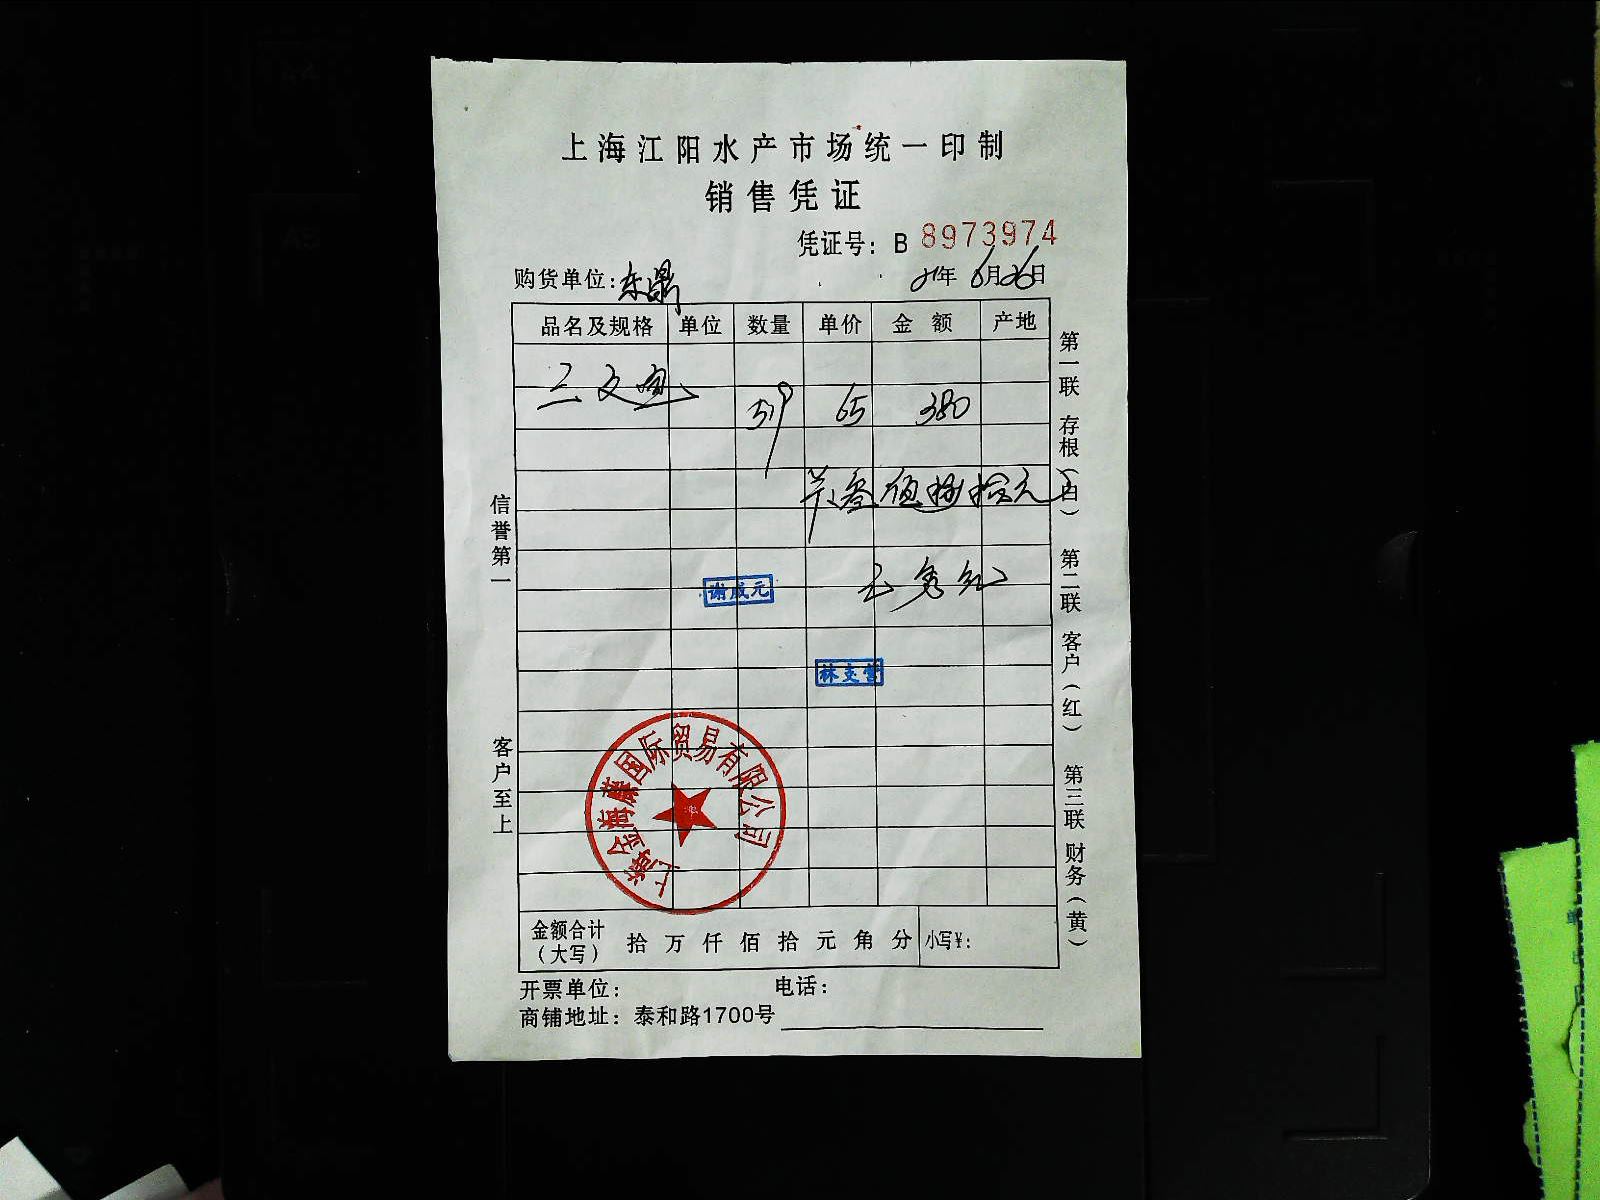 上海江阳水产市场统一印制
销售凭证
凭证号：B 8973974
购货单位：东鼎
21年 6月26日
品名及规格 单位 数量 单价 金额 产地
三文鱼
59 65 380
叁佰捌拾元
谢成元
上海金海藤国际贸易有限公司
金额合计（大写） 拾 万 仟 佰 拾 元 角 分 小写￥：
开票单位： 电话：
商铺地址：泰和路1700号
信誉第一 客户至上
第一联 存根（白） 第二联 客户（红） 第三联 财务（黄）